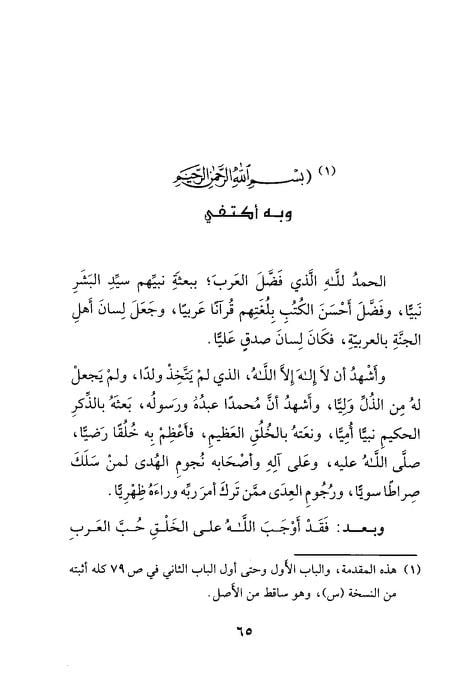 (١) (بسم الله الرحمن الرحيم
وبه أكتفي
الحمدُ للَّـهِ الَّذي فَضَّلَ العَربَ؛ ببعثةِ نبيِّهم سيِّدِ البَشَرِ
نَبيًّا، وفَضَّلَ أَحْسَنَ الكُتُبِ بِلُغَتِهم قُرآنًا عَربيًا، وجَعَلَ لِسانَ أهلِ
الجنَّةِ بالعربيّةِ، فكَانَ لِسانَ صدقٍ عَليًّا.
وأَشْهدُ أن لا إِلـٰهَ إلاَّ اللَّـهُ، الذي لم يَتَّخِذْ ولدًا، ولم يَجعل
لهُ مِن الذُّلِّ وَليًّا، وأشهدُ أنَّ مُحمدًا عبدُهُ ورَسولُه، بَعثَهُ بالذِّكرِ
الحكيمِ نبيًّا أُمِّيًّا، ونعتَهُ بالخُلُقِ العظيمِ، فأَعْظِمْ بِه خُلُقًا رَضيًّا،
صلَّى اللَّـهُ عليه، وعَلى آلِهِ وأَصْحَابه نُجومِ الهُدى لمنْ سَلَكَ
صِراطًا سويًّا، ورُجُومِ العِدَى ممَّن تَركَ أمرَ ربِّه وراءَهُ ظِهْريًّا.
وبـعـد: فَقَدْ أَوْجَبَ اللَّـهُ على الخَلْقِ حُبَّ العرب
(١) هذه المقدمة، والباب الأول وحتى أول الباب الثاني في ص ٧٩ كله أثبته
من النسخة (س)، وهو ساقط من الأصل.
٦٥